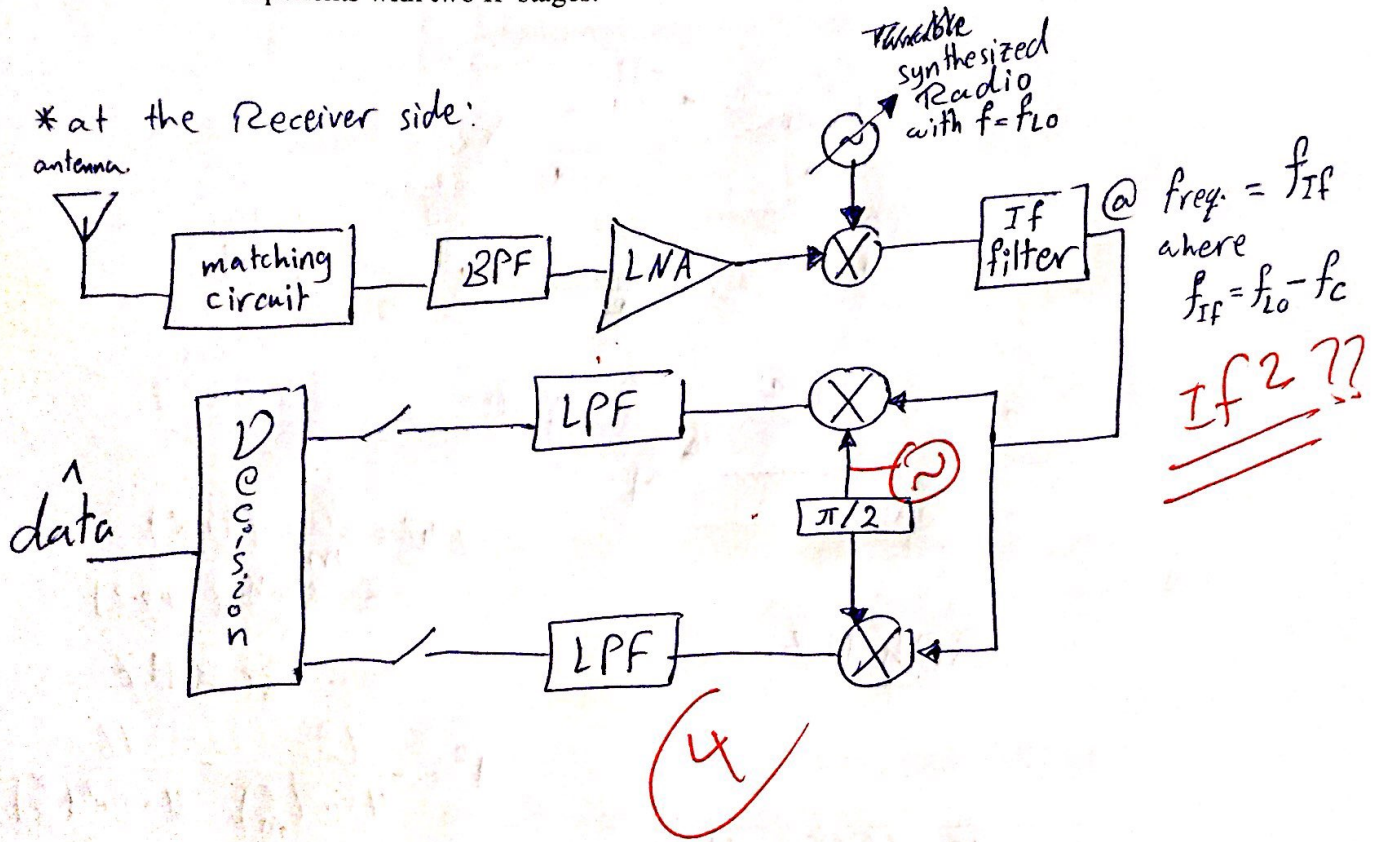 with two IF stages.
* at the Receiver side:
antenna.
synthesized
Radio
with f = f_LO
matching
circuit
BPF
LNA
X
If
filter
@ freq. = f_If
where
f_If = f_LO - f_c
If 2 ??
LPF
X
~
π/2
Decision
^
data
LPF
X
4